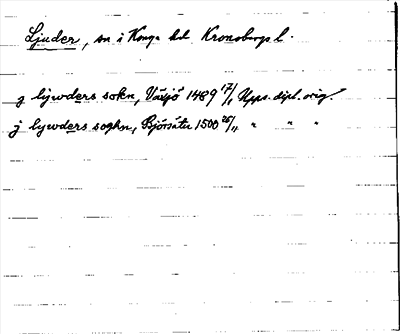 Ljuder, sn i Konga hd Kronobergs l.
j lywders sokn, Växjö 1489 17/11 Upps. dipl. orig.
j lywders soghn, Björsätu 1500 25/11 " " "